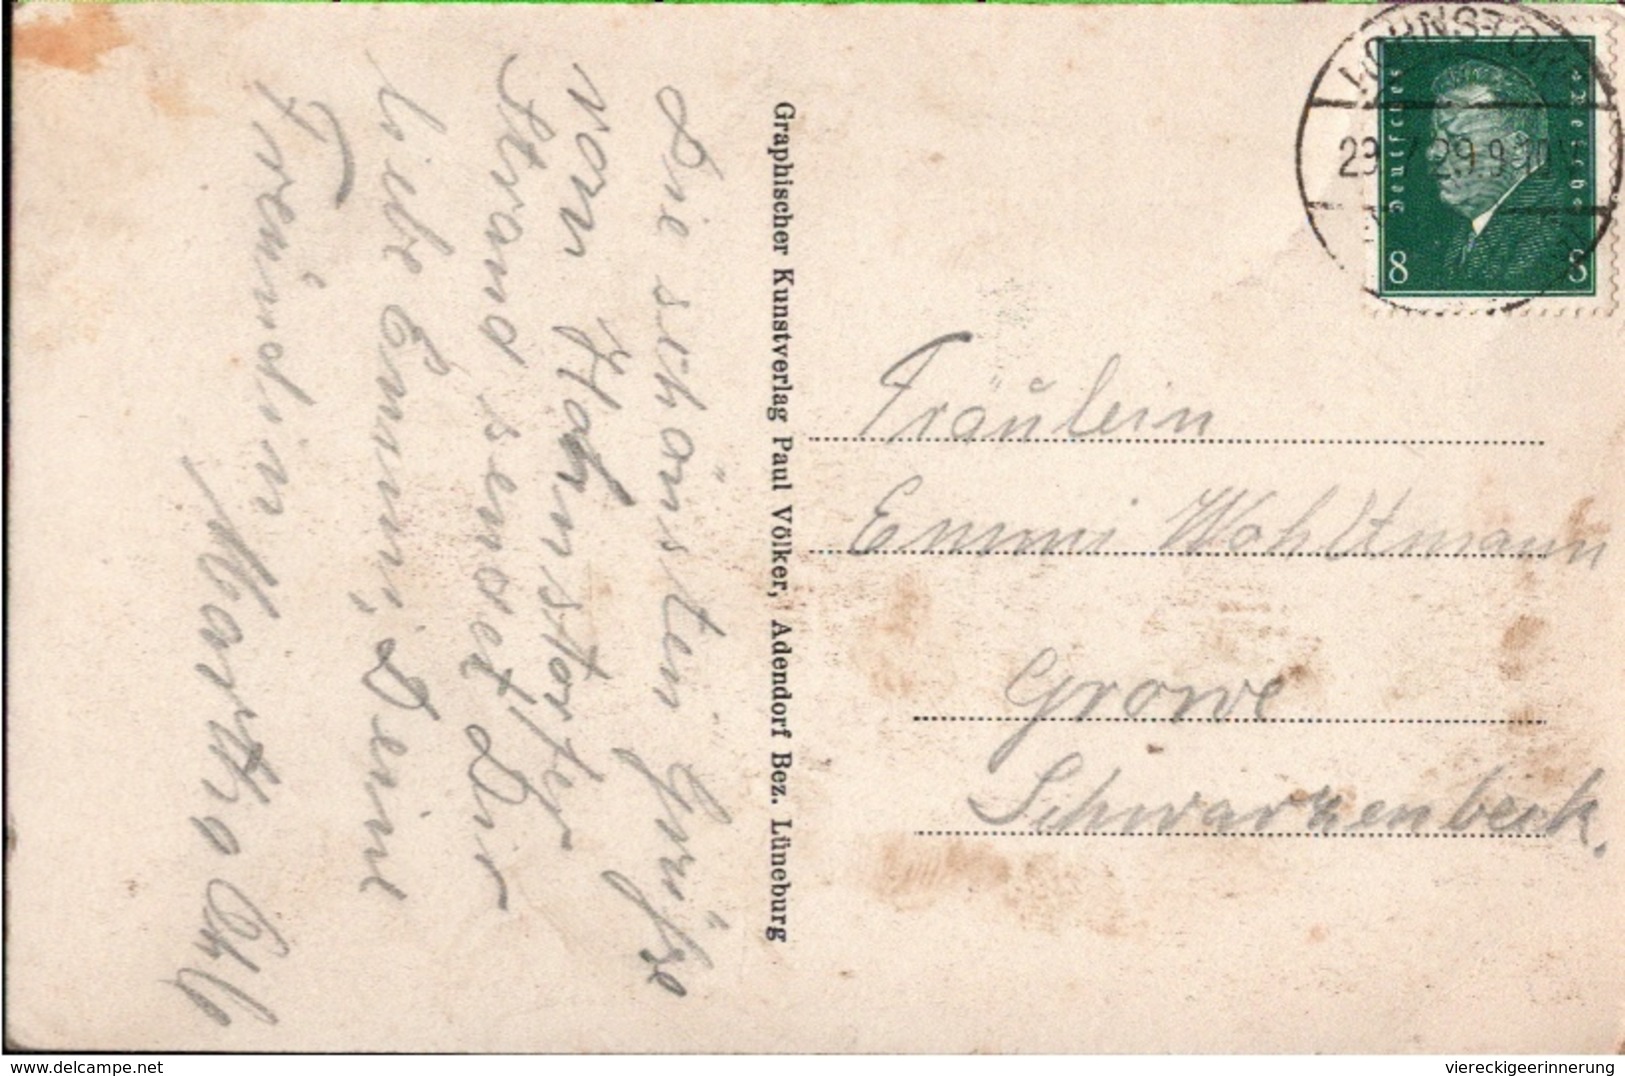 Die schönsten Grüße
vom Hohnstorfer
Strand sendet Dir
liebe Emmi, Deine
Freundin
Martha
Graphischer Kunstverlag Paul Völker, Adendorf Bez. Lüneburg
HOHNSTORF
29.9.10
Deutsches Reich
8 8
Fräulein
Emmi Wohltmann
Grove
Schwarzenbeck.
delcampe.net
viereckigeerinnerung